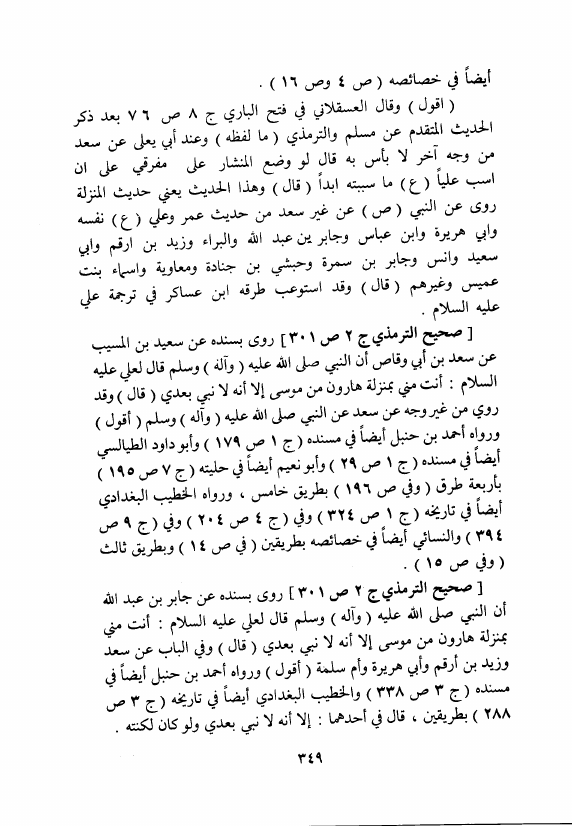 أيضاً في خصائصه ( ص ٤ وص ١٦ ) .
( اقول ) وقال العسقلاني في فتح الباري ج ٨ ص ٧٦ بعد ذكر
الحديث المتقدم عن مسلم والترمذي ( ما لفظه ) وعند أبي يعلى عن سعد
من وجه آخر لا بأس به قال لو وضع المنشار على مفرقي على ان
اسب علياً ( ع ) ما سببته ابداً ( قال ) وهذا الحديث يعني حديث المنزلة
روى عن النبي ( ص ) عن غير سعد من حديث عمر وعلي ( ع ) نفسه
وابي هريرة وابن عباس وجابر بن عبد الله والبراء وزيد بن ارقم وابي
سعيد وانس وجابر بن سمرة وحبشي بن جنادة ومعاوية واسماء بنت
عميس وغيرهم ( قال ) وقد استوعب طرقه ابن عساكر في ترجمة علي
عليه السلام .
[ صحيح الترمذي ج ٢ ص ٣٠١ ] روى بسنده عن سعيد بن المسيب
عن سعد بن أبي وقاص أن النبي صلى الله عليه ( وآله ) وسلم قال لعلي عليه
السلام : أنت مني بمنزلة هارون من موسى إلا أنه لا نبي بعدي ( قال ) وقد
روي من غير وجه عن سعد عن النبي صلى الله عليه ( وآله ) وسلم ( أقول )
ورواه أحمد بن حنبل أيضاً في مسنده ( ج ١ ص ١٧٩ ) وأبو داود الطيالسي
أيضاً في مسنده ( ج ١ ص ٢٩ ) وأبو نعيم أيضاً في حليته ( ج ٧ ص ١٩٥ )
بأربعة طرق ( وفي ص ١٩٦ ) بطريق خامس ، ورواه الخطيب البغدادي
أيضاً في تاريخه ( ج ١ ص ٣٢٤ ) وفي ( ج ٤ ص ٢٠٤ ) وفي ( ج ٩ ص
٣٩٤ ) والنسائي أيضاً في خصائصه بطريقين ( في ص ١٤ ) وبطريق ثالث
( وفي ص ١٥ ) .
[ صحيح الترمذي ج ٢ ص ٣٠١ ] روى بسنده عن جابر بن عبد الله
أن النبي صلى الله عليه ( وآله ) وسلم قال لعلي عليه السلام : أنت مني
بمنزلة هارون من موسى إلا أنه لا نبي بعدي ( قال ) وفي الباب عن سعد
وزيد بن أرقم وأبي هريرة وأم سلمة ( أقول ) ورواه أحمد بن حنبل أيضاً في
مسنده ( ج ٣ ص ٣٣٨ ) والخطيب البغدادي أيضاً في تاريخه ( ج ٣ ص
٢٨٨ ) بطريقين ، قال في أحدهما : إلا أنه لا نبي بعدي ولو كان لكنته .
٣٤٩